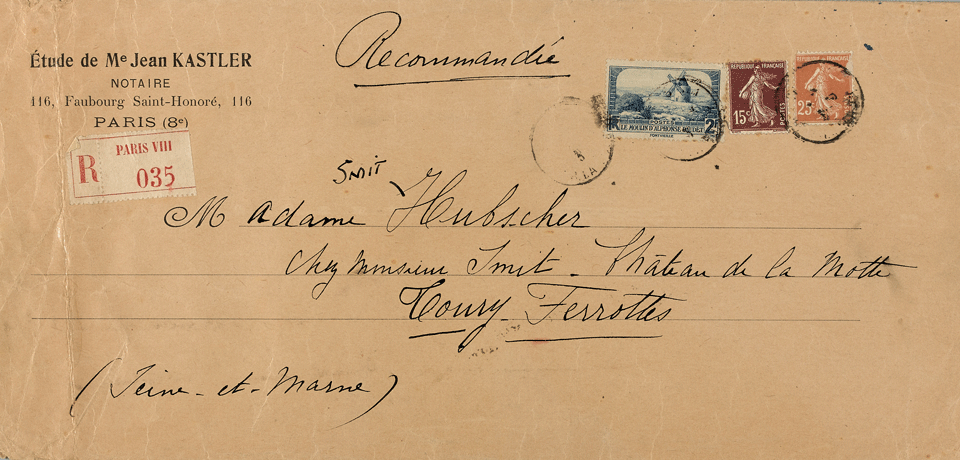 Étude de Me Jean KASTLER
NOTAIRE
116, Faubourg Saint-Honoré, 116
PARIS (8e)
Recommandée
R PARIS VIII
035
POSTES
LE MOULIN D'ALPHONSE DAUDET
FONTVIEILLE
2F
REPUBLIQUE FRANÇAISE
15c
POSTES
25c
Smit
Madame Hubscher
chez Monsieur Smit - Château de la Motte
Thoury - Ferrottes
(Seine-et-Marne)